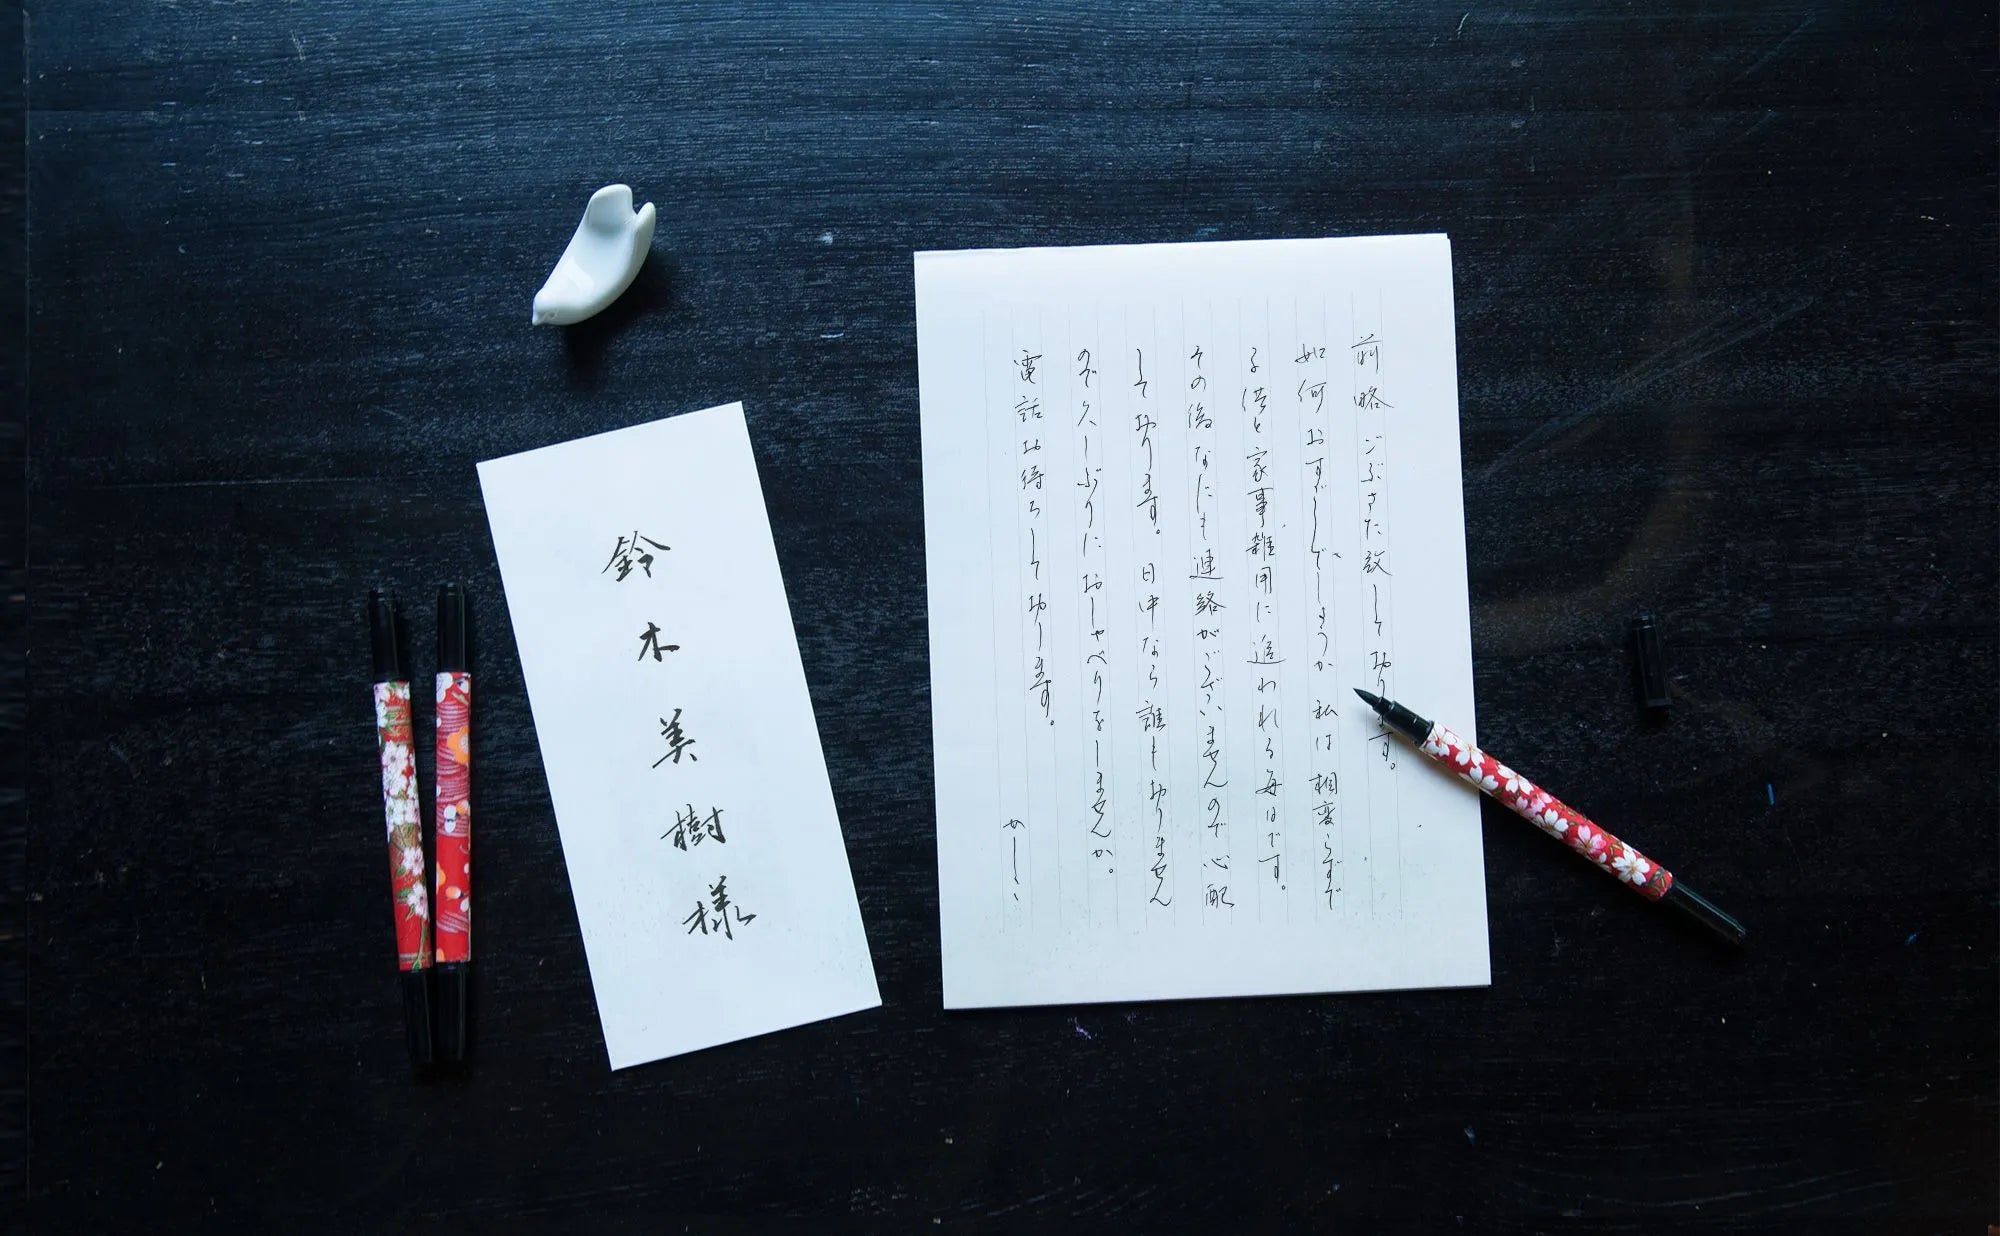 鈴木美樹様
前略 ごぶさた致しております。
如何おすごしでしょうか 私は相変らずで
子供と家事雑用に追われる毎日です。
その後なにも連絡がございませんので心配
しております。 日中なら誰もおりません
ので久しぶりにおしゃべりをしませんか。
電話お待ちしております。
かしこ